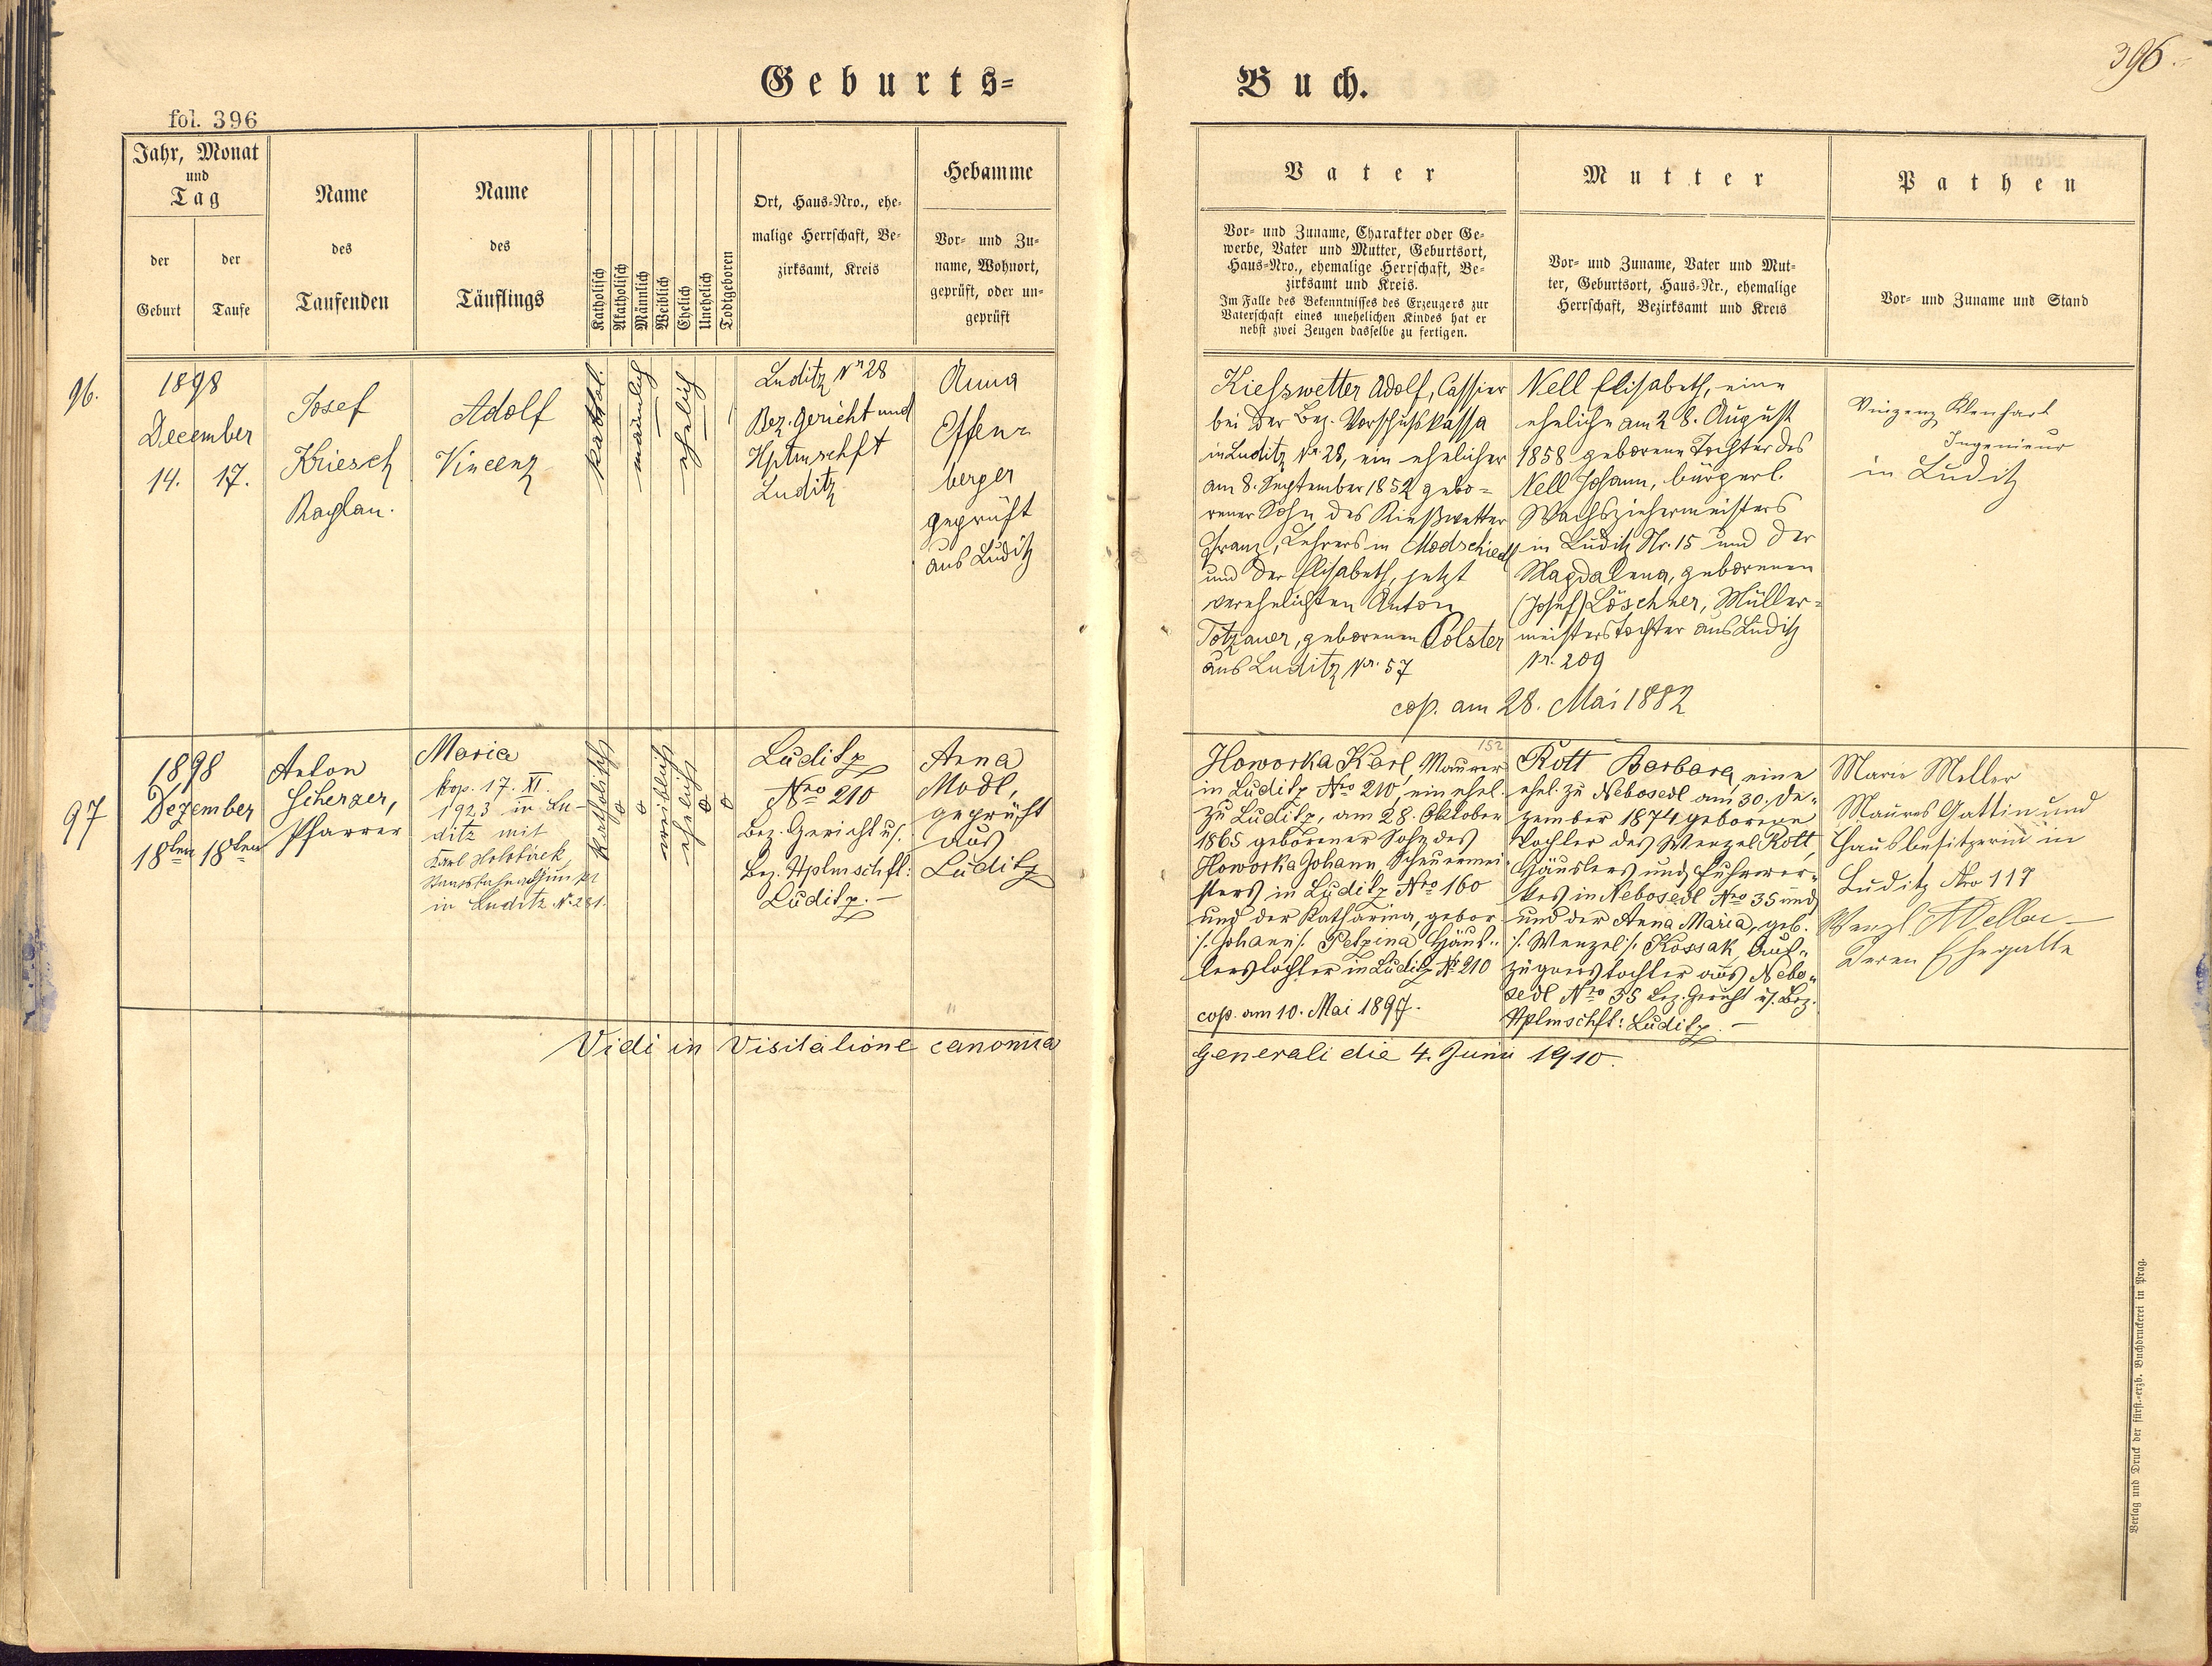 396.
Geburts-
Buch.
fol. 396
Jahr, Monat
und
Tag
der
Geburt
der
Taufe
Name
des
Taufenden
Name
des
Täuflings
Katholisch
Akatholisch
Männlich
Weiblich
Ehelich
Unehelich
Todtgeboren
Ort, Haus-Nro., ehe-
malige Herrschaft, Be-
zirksamt, Kreis
Hebamme
Vor- und Zu-
name, Wohnort,
geprüft, oder un-
geprüft
Vater
Vor- und Zuname, Charakter oder Ge-
werbe, Vater und Mutter, Geburtsort,
Haus-Nro., ehemalige Herrschaft, Be-
zirksamt und Kreis.
Im Falle des Bekenntnisses des Erzeugers zur
Vaterschaft eines unehelichen Kindes hat er
nebst zwei Zeugen dasselbe zu fertigen.
Mutter
Vor- und Zuname, Vater und Mut-
ter, Geburtsort, Haus-Nr., ehemalige
Herrschaft, Bezirksamt und Kreis
Pathen
Vor- und Zuname und Stand
96.
1898
December
14. 17.
Josef
Kriesch
Kaplan.
Adolf
Vincenz
kathol.
männlich
ehelich
Luditz Nr 28
Bez. Gericht und
Hptmschft
Luditz
Anna
Offen-
berger
geprüft
aus Luditz
Kieszwetter Adolf, Cassier
bei der Bez. Vorschußkassa
in Luditz Nr. 28, ein ehelicher
am 8. September 1852 gebo-
rener Sohn des Kießwetter
Franz, Lehrers in Modschiedl
und der Elisabeth, jetzt
verehelichten Anton
Totzauer, geborenen Polster
aus Luditz Nr. 57
Nell Elisabeth, eine
eheliche am 28. August
1858 geborene Tochter des
Nell Johann, bürgerl.
Wachsziehermeisters
in Luditz Nr. 15 und der
Magdalena, geborenen
(Josef) Löschner, Müller-
meisterstochter aus Luditz
Nr. 209
cop. am 28. Mai 1882
Vinzenz Klenhart
Ingenieur
in Luditz
97
1898
Dezember
18ten 18ten
Anton
Scherzer,
Pfarrer
Maria
kop. 17. XI.
1923 in Lu-
ditz mit
Karl Holobirek,
in Luditz N. 281.
katholisch
o
o
weiblich
ehelich
o
o
Luditz
Nro 210
Bez. Gericht u/.
Bez. Hptmschft:
Luditz. —
Anna
Modl,
geprüft
aus
Luditz
152
Howorka Karl, Maurer
in Luditz Nro 210, ein ehel.
zu Luditz, am 28. Oktober
1865 geborener Sohn des
Howorka Johann, Scheuermei-
sters in Luditz Nro 160
und der Katharina, gebor.
/. Johann /. Petzina Häus-
lerstochter in Luditz Nr. 210
cop. am 10. Mai 1897.
Rott Barbara, eine
ehel. zu Nebosedl am 30. De-
zember 1874 geborene
Tochter des Wenzel Rott,
Häuslers und Fuhrwer-
kes in Nebosedl Nro 35 und
und der Anna Maria, geb.
/. Wenzel /. Kossak, Aus-
züglerstochter aus Nebo-
sedl Nro 35 Bez. Gericht u/. Bez.
Hptmschft: Luditz. —
Marie Meller
Maurers Gattin und
Hausbesitzerin in
Luditz Nro 117
Wenzl Meller
deren Ehegatte
Vidi in Visitatione canonica
generali die 4. Juni 1910.
Verlag und Druck der fürst.-erzb. Buchdruckerei in Prag.